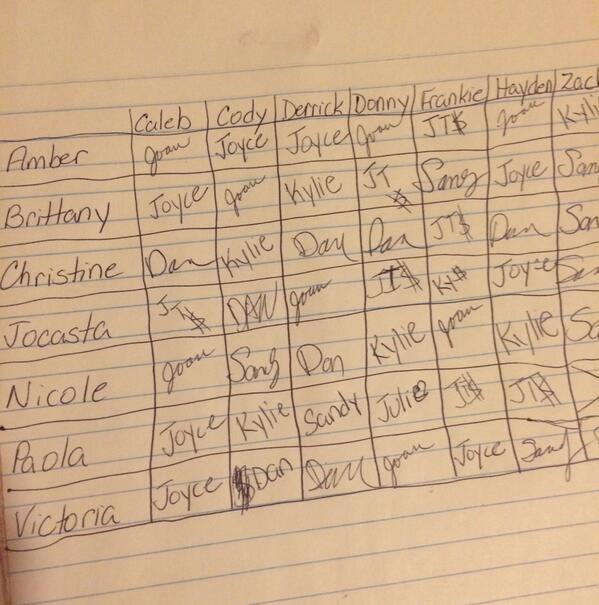 Caleb Cody Derrick Donny Frankie Hayden Zac
Amber Joan Joyce Joyce Joan JT$ Joan Kyli
Brittany Joyce Joan Kylie JT$ Sang Joyce San
Christine Dan Kylie Dan Dan JT$ Dan San
Jocasta JT$ DAN Joan JT$ Ky$ Joyce San
Nicole Joan Sang Dan Kylie Joan Kylie Sa
Paola Joyce Kylie Sandy Julie JT$ JT$
Victoria Joyce Dan Dan Joan Joyce Sang